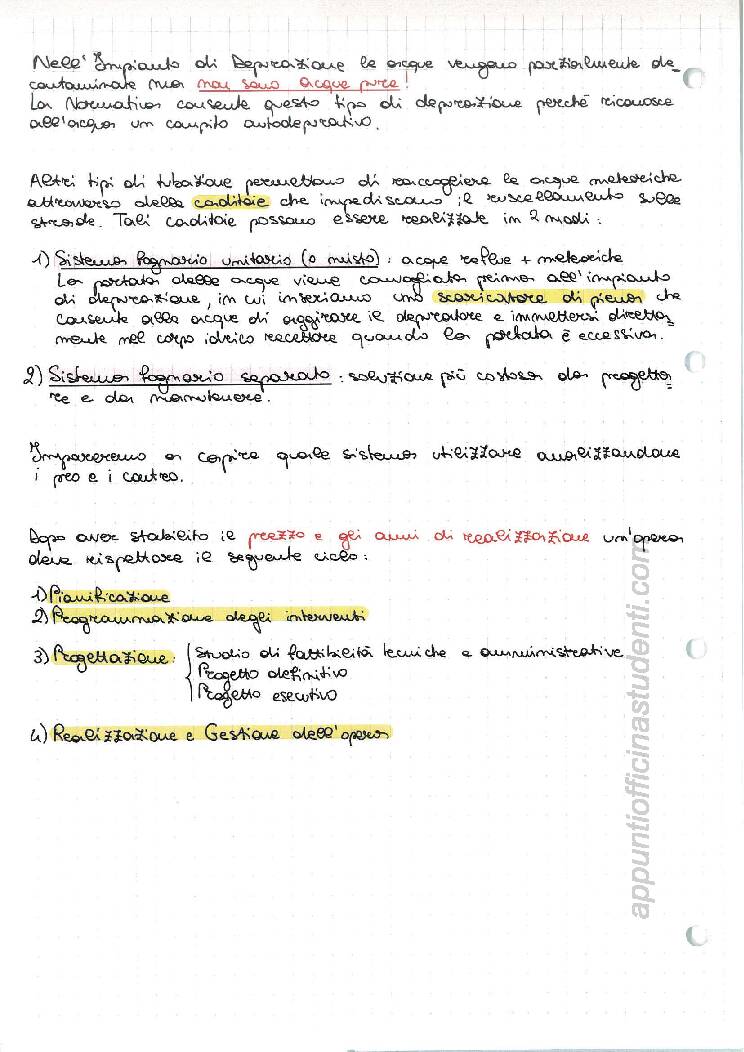 Nell'Impianto di Depurazione le acque vengono parzialmente de_
contaminate ma non sono acque pure!
La Normativa consente questo tipo di depurazione perché riconosce
all'acqua un compito autodepurativo.
Altri tipi di tubazione permettono di raccogliere le acque meteoriche
attraverso delle caditoie che impediscono il ruscellamento sulle
strade. Tali caditoie possono essere realizzate in 2 modi:
1) Sistema fognario unitario (o misto): acque reflue + meteoriche
La portata delle acque viene convogliata prima all'impianto
di depurazione, in cui inseriamo uno scaricatore di piena che
consente alle acque di aggirare il depuratore e immettersi diretta_
mente nel corpo idrico recettore quando la portata è eccessiva.
2) Sistema fognario separato: soluzione più costosa da progetta_
re e da manutenere.
Impareremo a capire quale sistema utilizzare analizzandone
i pro e i contro.
Dopo aver stabilito il prezzo e gli anni di realizzazione un'opera
deve rispettare il seguente ciclo:
1) Pianificazione
2) Programmazione degli interventi
3) Progettazione: Studio di fattibilità tecniche e amministrative
Progetto definitivo
Progetto esecutivo
4) Realizzazione e Gestione dell'opera
appuntiofficinastudenti.com